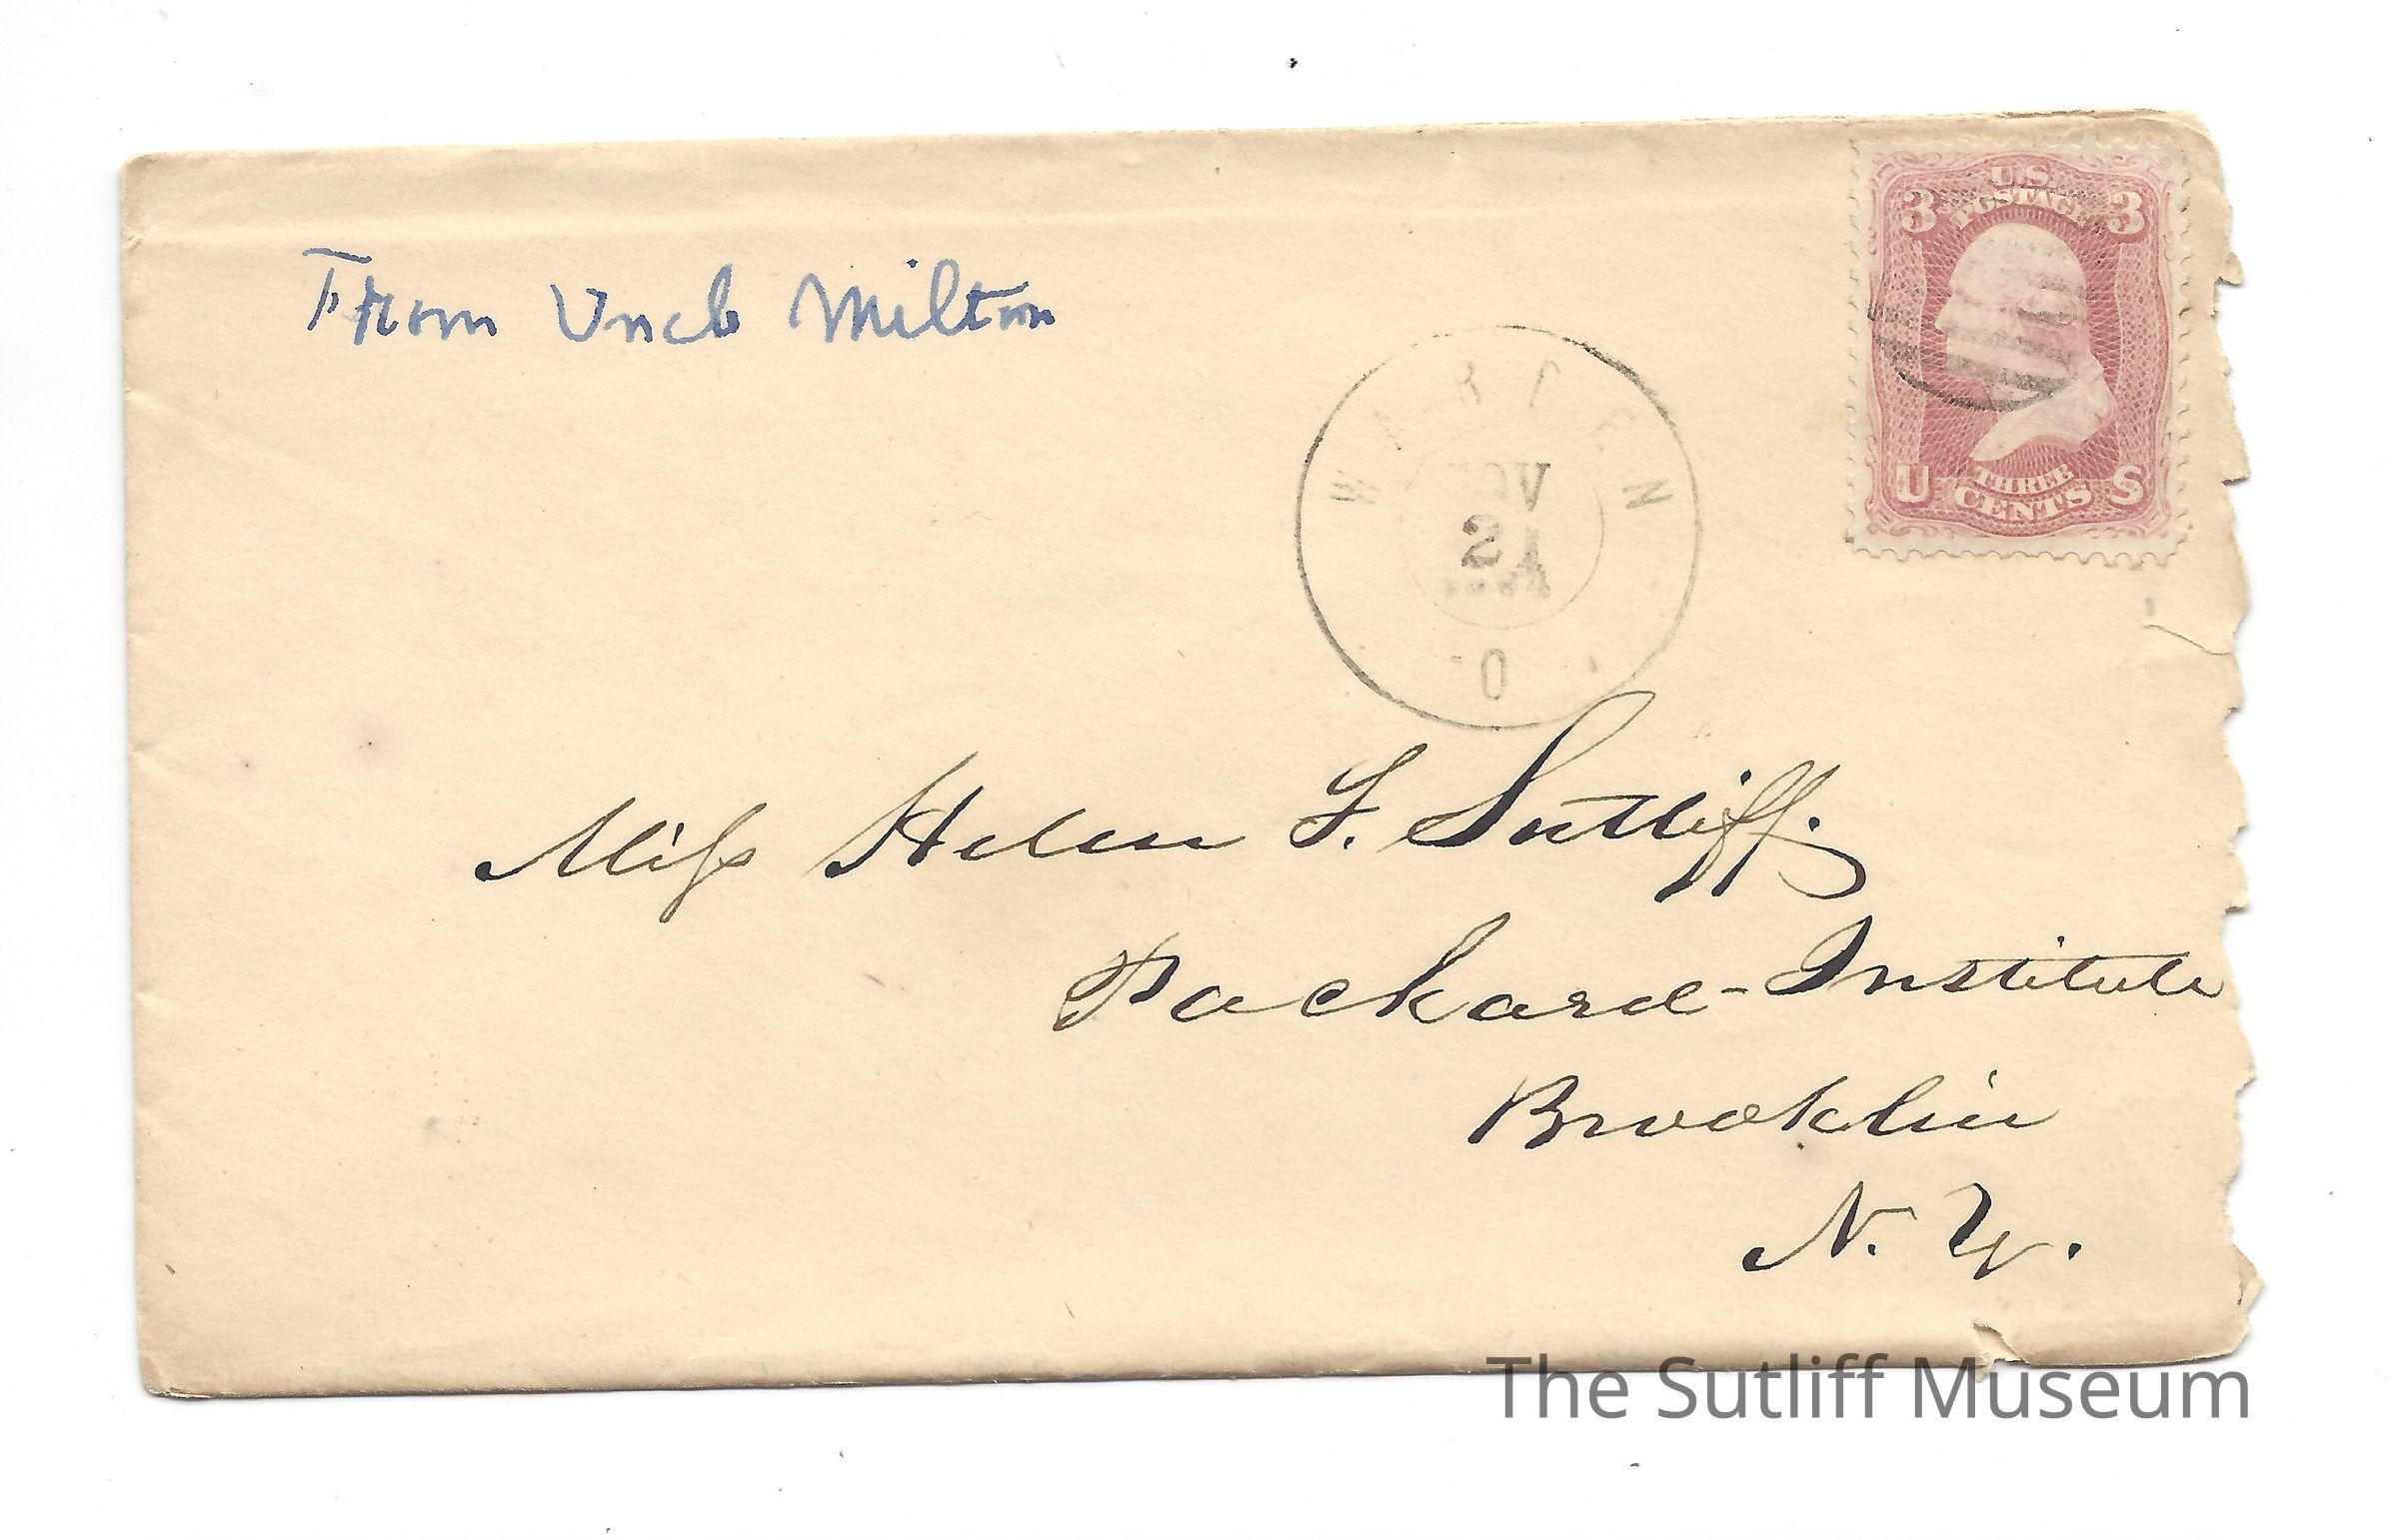 From Uncle Milton
U.S.
POSTAGE
3 3
THREE
CENTS
U S
WARREN
NOV
O
Miſs Helen F. Sutliff.
Packard-Institute
Brooklin
N. Y.
The Sutliff Museum